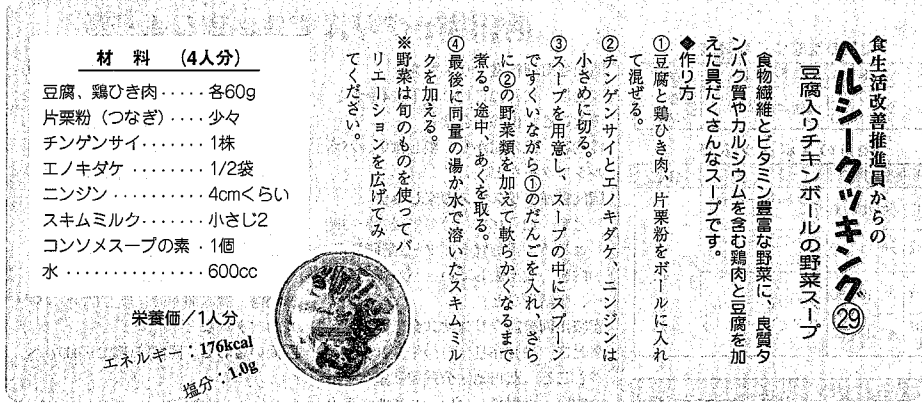 食生活改善推進員からの
ヘルシークッキング㉙
豆腐入りチキンボールの野菜スープ
食物繊維とビタミン豊富な野菜に、良質タ
ンパク質やカルシウムを含む鶏肉と豆腐を加
えた具だくさんなスープです。
◆作り方
①豆腐と鶏ひき肉、片栗粉をボールに入れ
て混ぜる。
②チンゲンサイとエノキダケ、ニンジンは
小さめに切る。
③スープを用意し、スープの中にスプーン
ですくいながら①のだんごを入れ、さら
に②の野菜類を加えて軟らかくなるまで
煮る。途中、あくを取る。
④最後に同量の湯か水で溶いたスキムミル
クを加える。
※野菜は旬のものを使ってバ
リエーションを広げてみ
てください。
材 料 (4人分)
豆腐、鶏ひき肉・・・・・各60g
片栗粉(つなぎ)・・・・少々
チンゲンサイ・・・・・・・1株
エノキダケ・・・・・・・・1/2袋
ニンジン・・・・・・・・・・4cmくらい
スキムミルク・・・・・・・小さじ2
コンソメスープの素・1個
水・・・・・・・・・・・・・・・600cc
栄養価/1人分
エネルギー:176kcal
塩分:1.0g